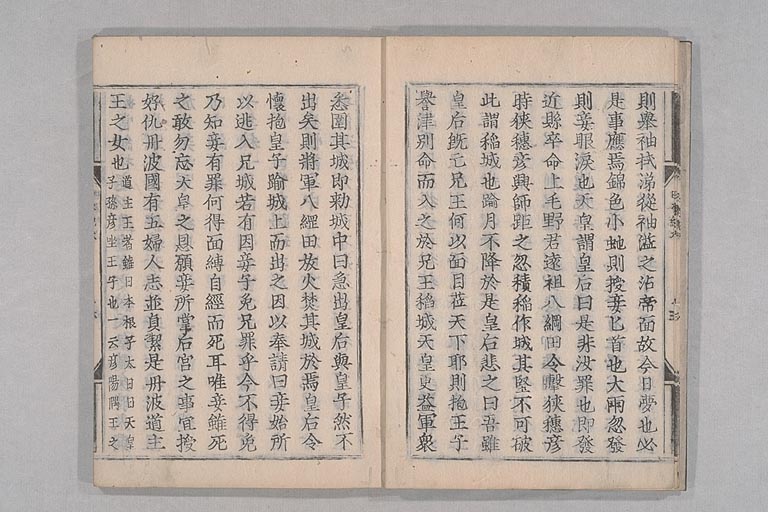 則擧袖拭涕從袖溢之沾帝面故今日夢也必
是事應焉錦色小虵則授妾匕首也大雨忽發
則妾眼淚也天皇謂皇后曰是非汝罪也即發
近縣卒命上毛野君遠祖八綱田令擊狹穗彦
時狹穗彦興師距之忽積稻作城其堅不可破
此謂稻城也踰月不降於是皇后悲之曰吾雖
皇后旣亡兄王何以面目莅天下耶則抱王子
譽津別命而入之於兄王稻城天皇更益軍衆
悉圍其城即勅城中曰急出皇后與皇子然不
出矣則將軍八綱田放火焚其城於焉皇后令
懷抱皇子踰城上而出之因以奉請曰妾始所
以逃入兄城若有因妾子免兄罪乎今不得免
乃知妾有罪何得面縛自經而死耳唯妾雖死
之敢勿忘天皇之恩願妾所掌后宮之事宜授
好仇丹波國有五婦人志並貞潔是丹波道主
王之女也道主王者稚日本根子太日日天皇
子孫彦坐王子也一云彦湯隅王之